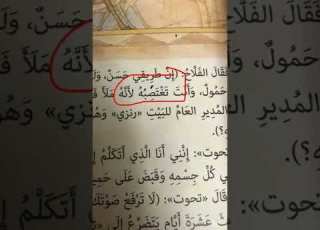 فَقَالَ الفَلَّاحُ: (إِنَّ طَرِيقِي حَسَنٌ، وَلَ
حَمُولٌ، وَأَنْتَ تَغْتَصِبُهُ لأَنَّهُ مَلَأَ فَ
المُدِيرِ العَامِّ لِلبَيْتِ «رنزي» وَهُوَ
ه؟).
تحوت»: إِنَّنِي أَنَا الَّذِي أَتَكَلَّمُ إِ
ي كُلِّ جِسْمِهِ وَقَبَضَ عَلَى حَمِيرِ
قَالَ «تحوت»: (لَا تَرْفَعْ صَوْتَكَ
تَ عَشَرَةَ أَيَّامٍ يَتَضَرَّعُ إِلَى